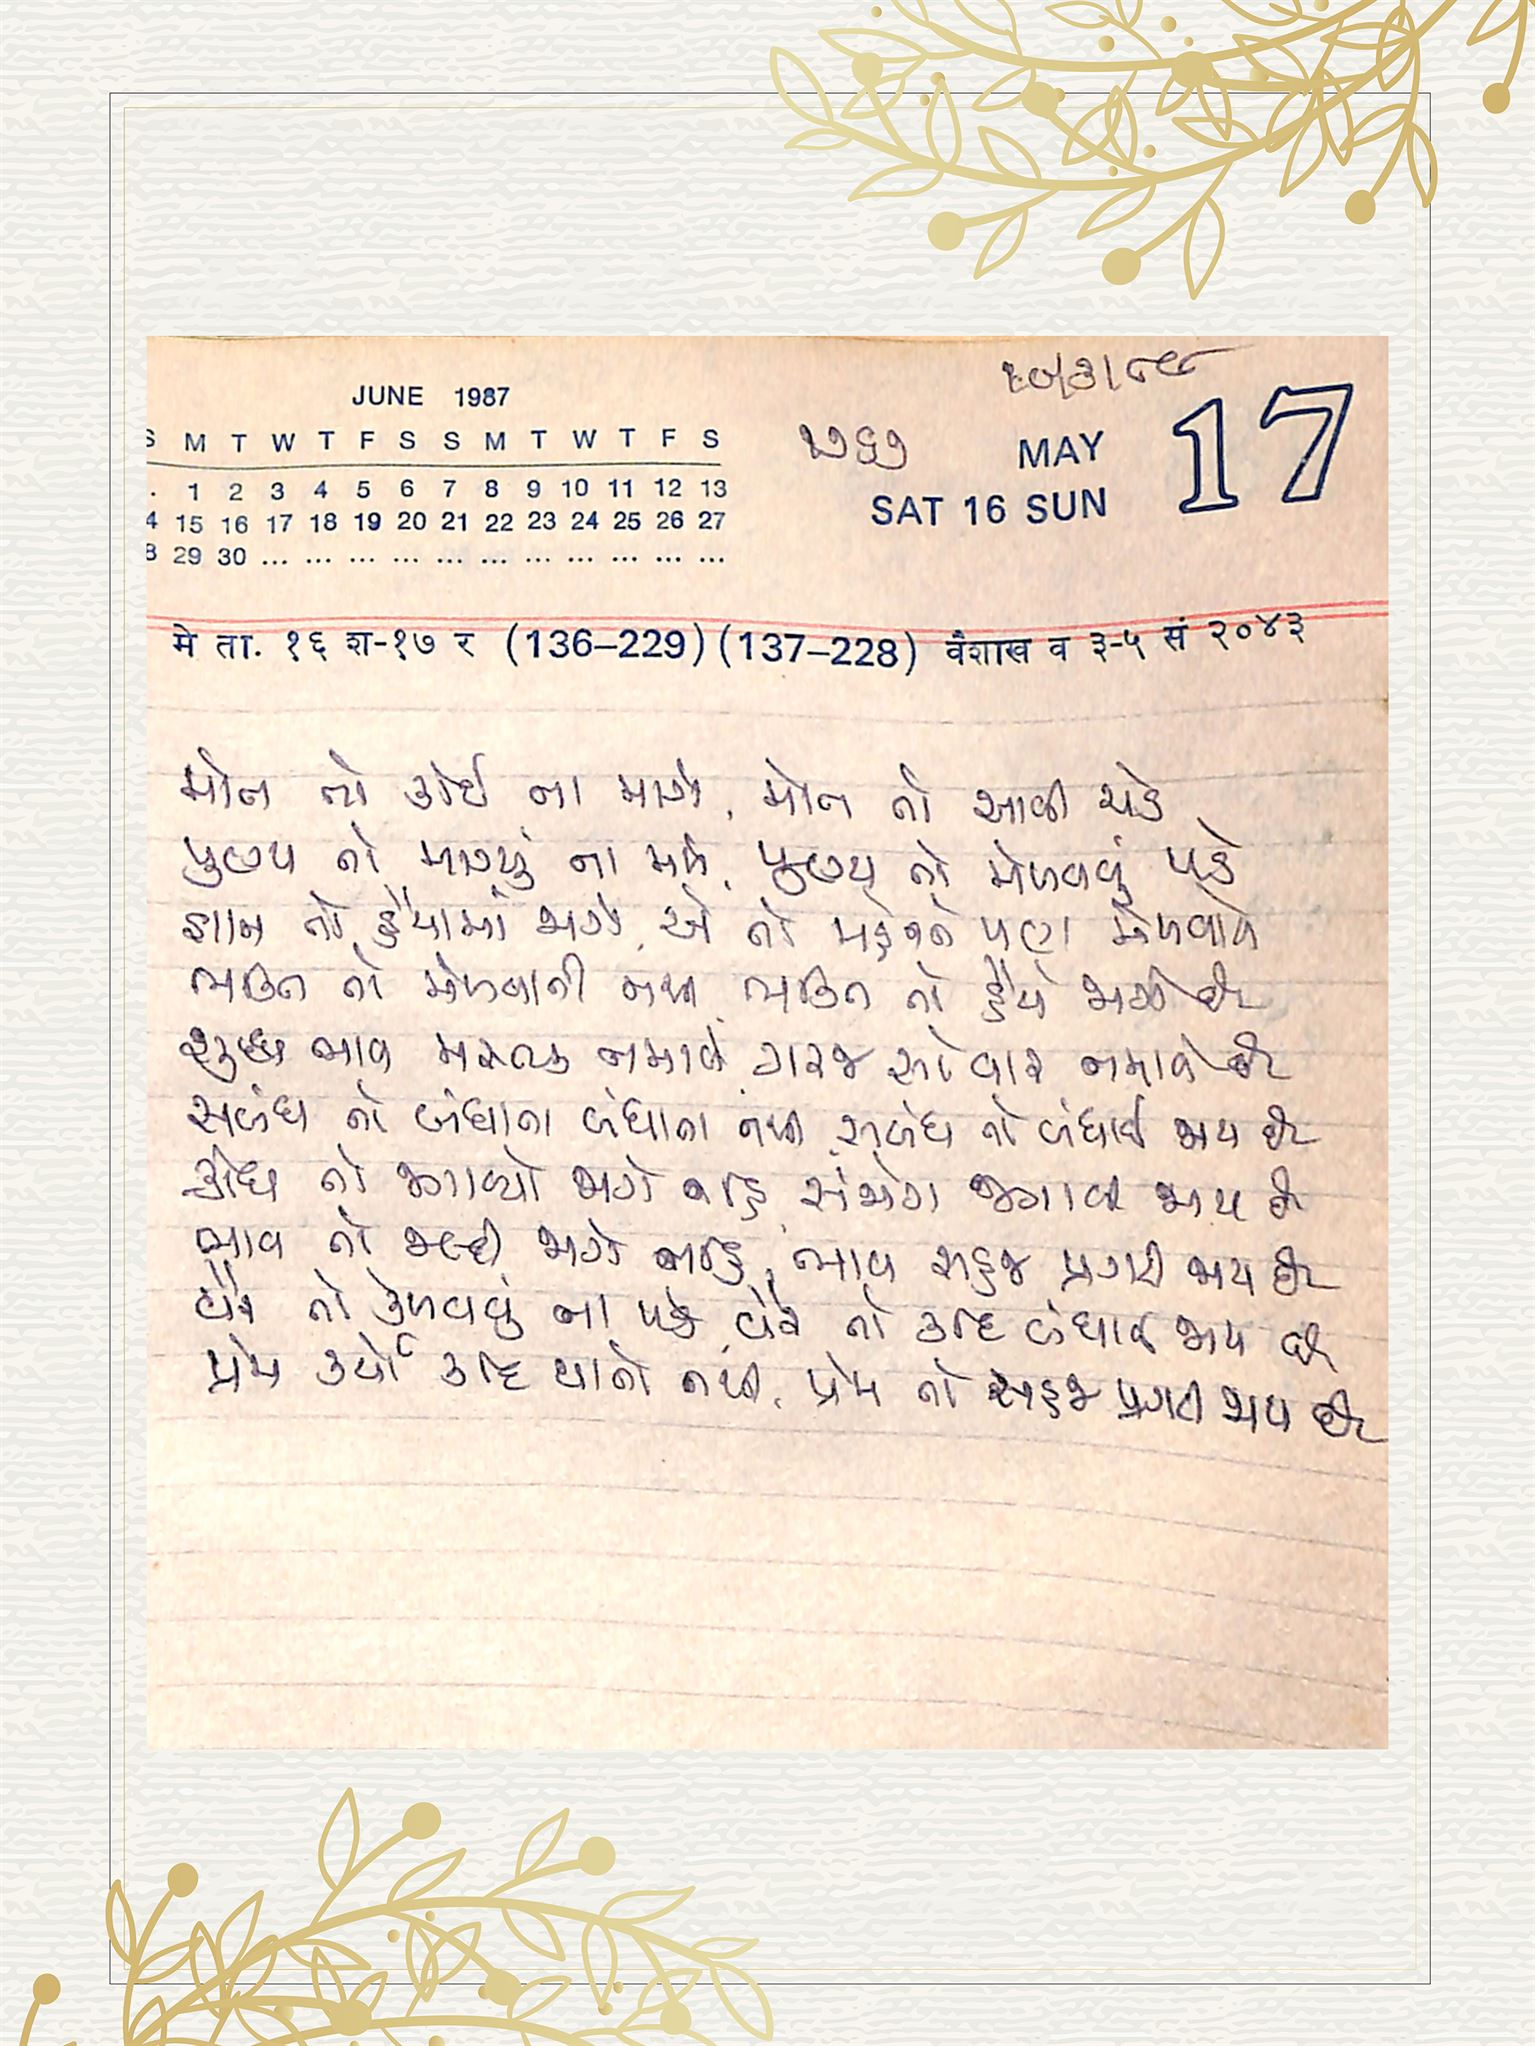 JUNE 1987
S M T W T F S S M T W T F S
. 1 2 3 4 5 6 7 8 9 10 11 12 13
4 15 16 17 18 19 20 21 22 23 24 25 26 27
8 29 30 ... ... ... ... ... ... ... ... ... ... ...
MAY 17
SAT 16 SUN
मे ता. १६ श-१७ र (136–229) (137–228) वैशाख व ३-५ सं २०४३
મોત તો કોઈ ના માગે, મોત તો આવી પડે
પુણ્ય તો માગ્યું ના મળે, પુણ્ય તો મેળવવું પડે
જ્ઞાન તો હૈયામાં જાગે, એ તો પણ
ભક્તિ તો મેળવાતી નથી, ભક્તિ તો હૈયે જાગે છે
શુદ્ધ ભાવ મસ્તક નમાવે, ગરજ સો વાર નમાવે છે
સબંધ તો બંધાતા બંધાતા નથી સબંધ તો બંધાઈ જાય છે
ક્રોધ તો જગાવ્યો જાગે નહિ, સંજોગ જગાવી જાય છે
ભાવ તો જલ્દી જાગે નહિ, ભાવ સહજ પ્રગટી જાય છે
વૈર તો કેળવવું ના પડે વૈર તો કદિ બંધાઈ જાય છે
પ્રેમ કર્યો કદિ થાતો નથી, પ્રેમ તો સહજ પ્રગટી જાય છે